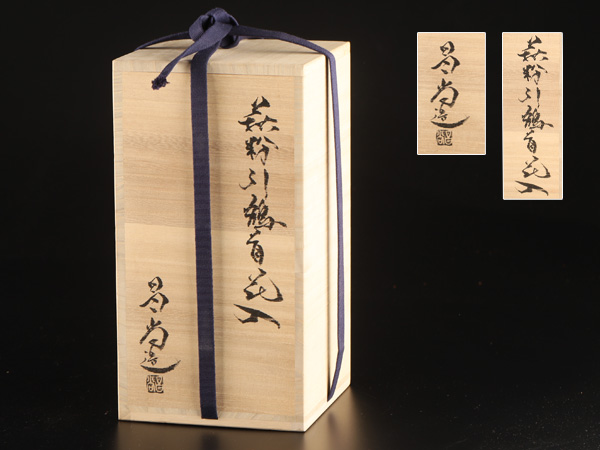 萩粉引鶴首花入
昌尚造
萩粉引鶴首花入
昌尚造